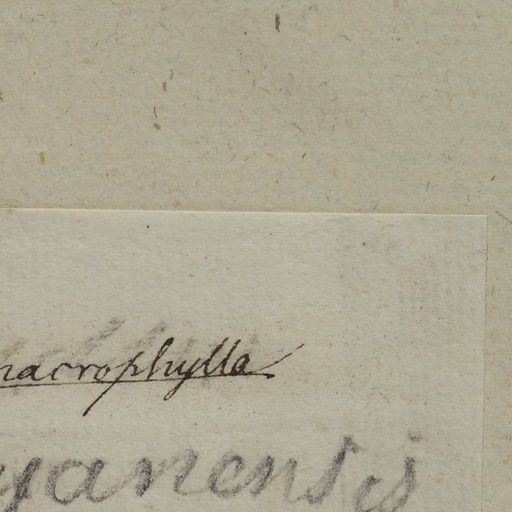 macrophylla
yanensis